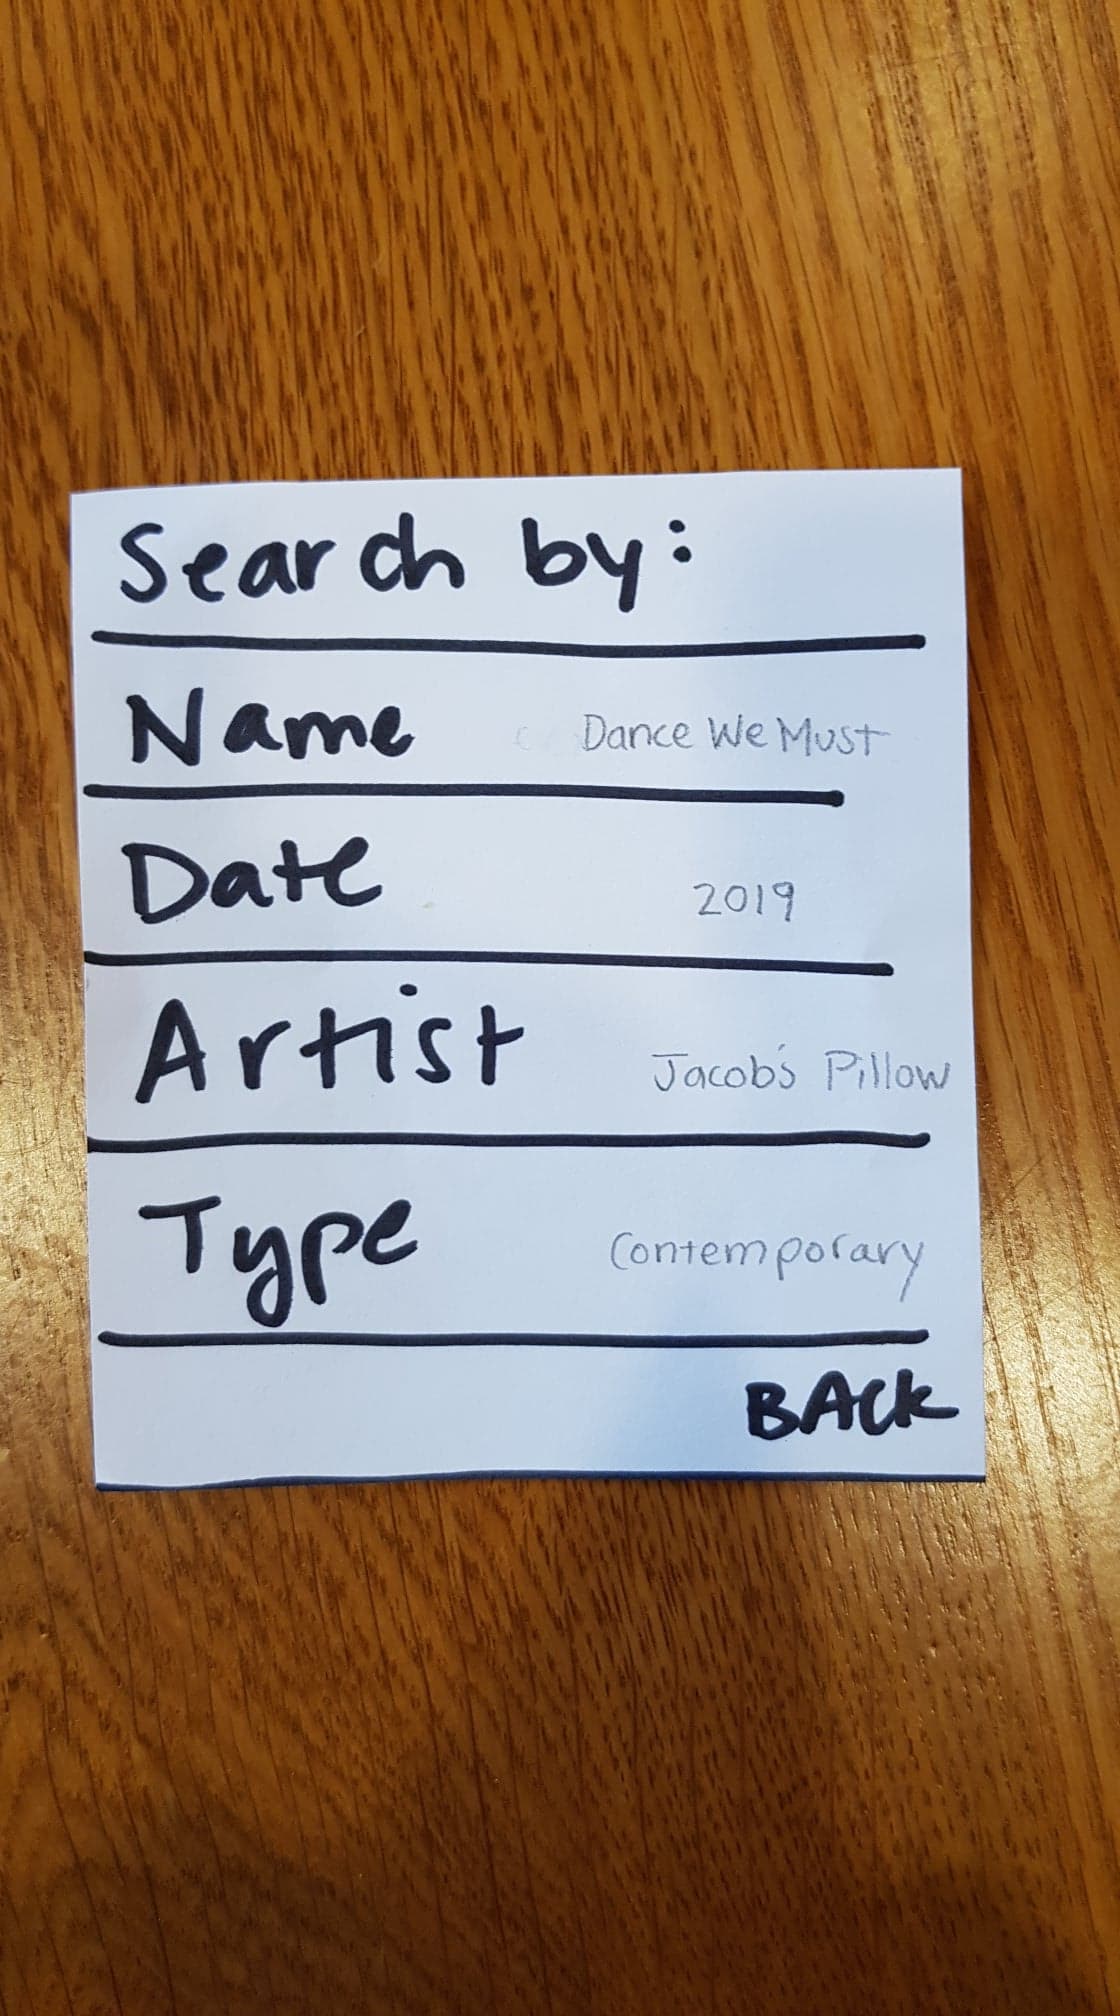 Search by:
Name Dance We Must
Date 2019
Artist Jacob's Pillow
Type Contemporary
BACK